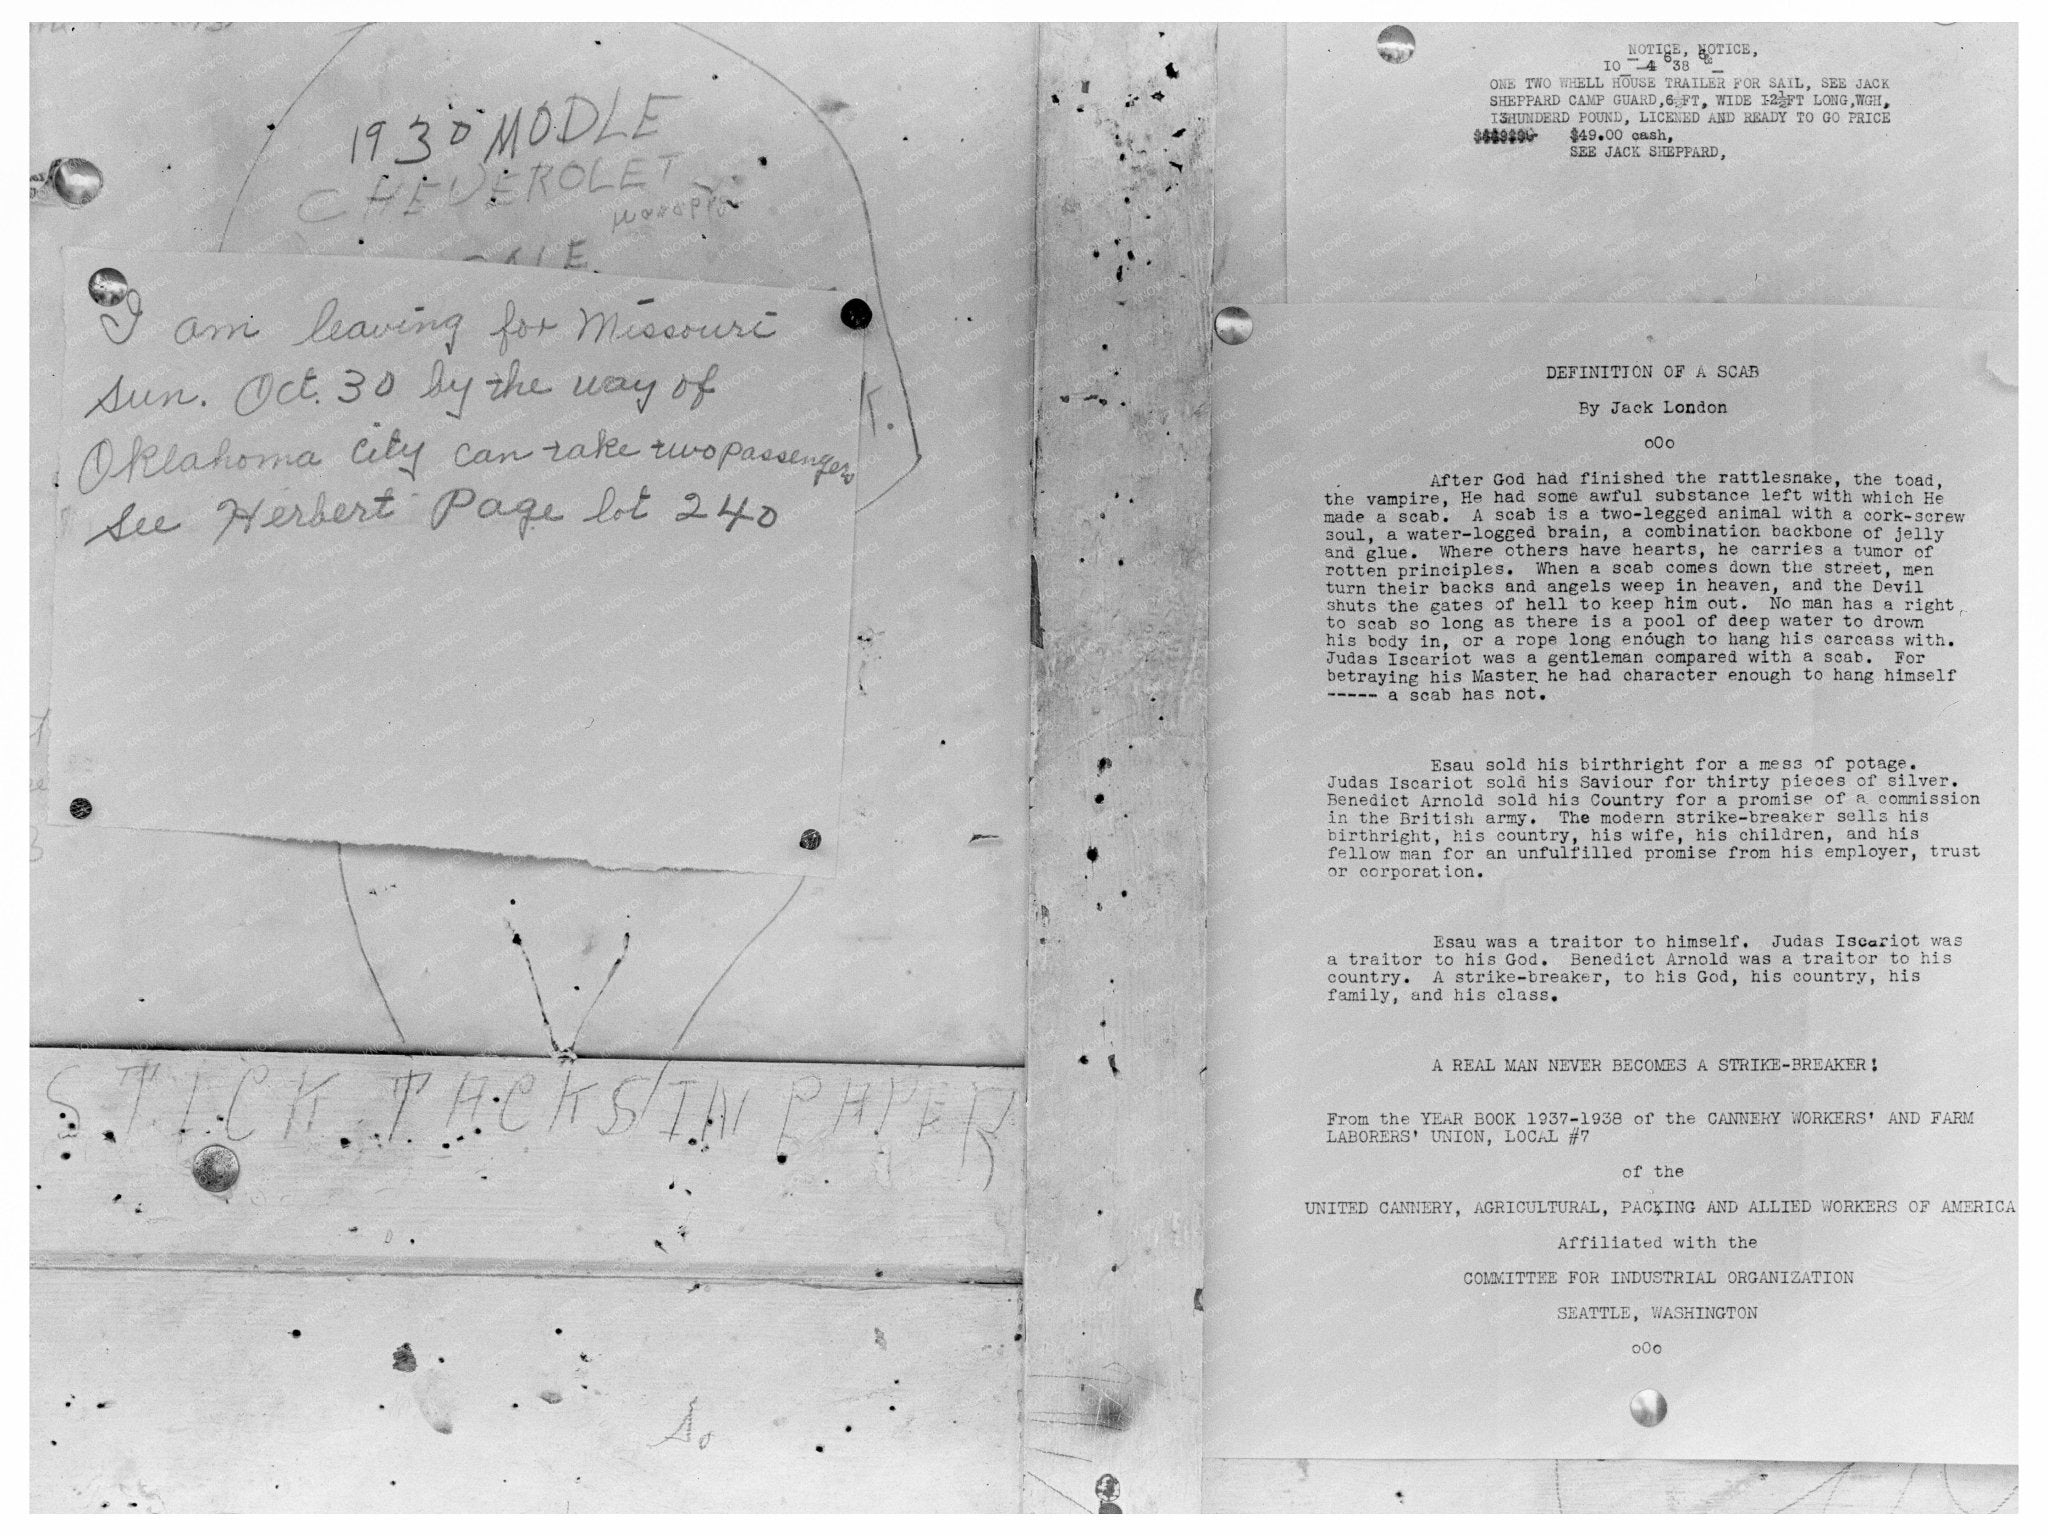 1930 MODLE
CHEVEROLET
I am leaving for Missouri
Sun. Oct. 30 by the way of
Oklahoma City can take two passengers
See Herbert Page lot 240
K.
STICK TACKS IN PAPER
NOTICE, NOTICE,
ONE TWO WHELL HOUSE TRAILER FOR SAIL, SEE JACK
SHEPPARD CAMP GUARD, 6½FT, WIDE 12½FT LONG,WGH,
I3HUNDERD POUND, LICENED AND READY TO GO PRICE
$49.00 cash,
SEE JACK SHEPPARD,
DEFINITION OF A SCAB
By Jack London
oOo
After God had finished the rattlesnake, the toad,
the vampire, He had some awful substance left with which He
made a scab. A scab is a two-legged animal with a cork-screw
soul, a water-logged brain, a combination backbone of jelly
and glue. Where others have hearts, he carries a tumor of
rotten principles. When a scab comes down the street, men
turn their backs and angels weep in heaven, and the Devil
shuts the gates of hell to keep him out. No man has a right
to scab so long as there is a pool of deep water to drown
his body in, or a rope long enough to hang his carcass with.
Judas Iscariot was a gentleman compared with a scab. For
betraying his Master he had character enough to hang himself
----- a scab has not.
Esau sold his birthright for a mess of potage.
Judas Iscariot sold his Saviour for thirty pieces of silver.
Benedict Arnold sold his Country for a promise of a commission
in the British army. The modern strike-breaker sells his
birthright, his country, his wife, his children, and his
fellow man for an unfulfilled promise from his employer, trust
or corporation.
Esau was a traitor to himself. Judas Iscariot was
a traitor to his God. Benedict Arnold was a traitor to his
country. A strike-breaker, to his God, his country, his
family, and his class.
A REAL MAN NEVER BECOMES A STRIKE-BREAKER!
From the YEAR BOOK 1937-1938 of the CANNERY WORKERS' AND FARM
LABORERS' UNION, LOCAL #7
of the
UNITED CANNERY, AGRICULTURAL, PACKING AND ALLIED WORKERS OF AMERICA
Affiliated with the
COMMITTEE FOR INDUSTRIAL ORGANIZATION
SEATTLE, WASHINGTON
oOo